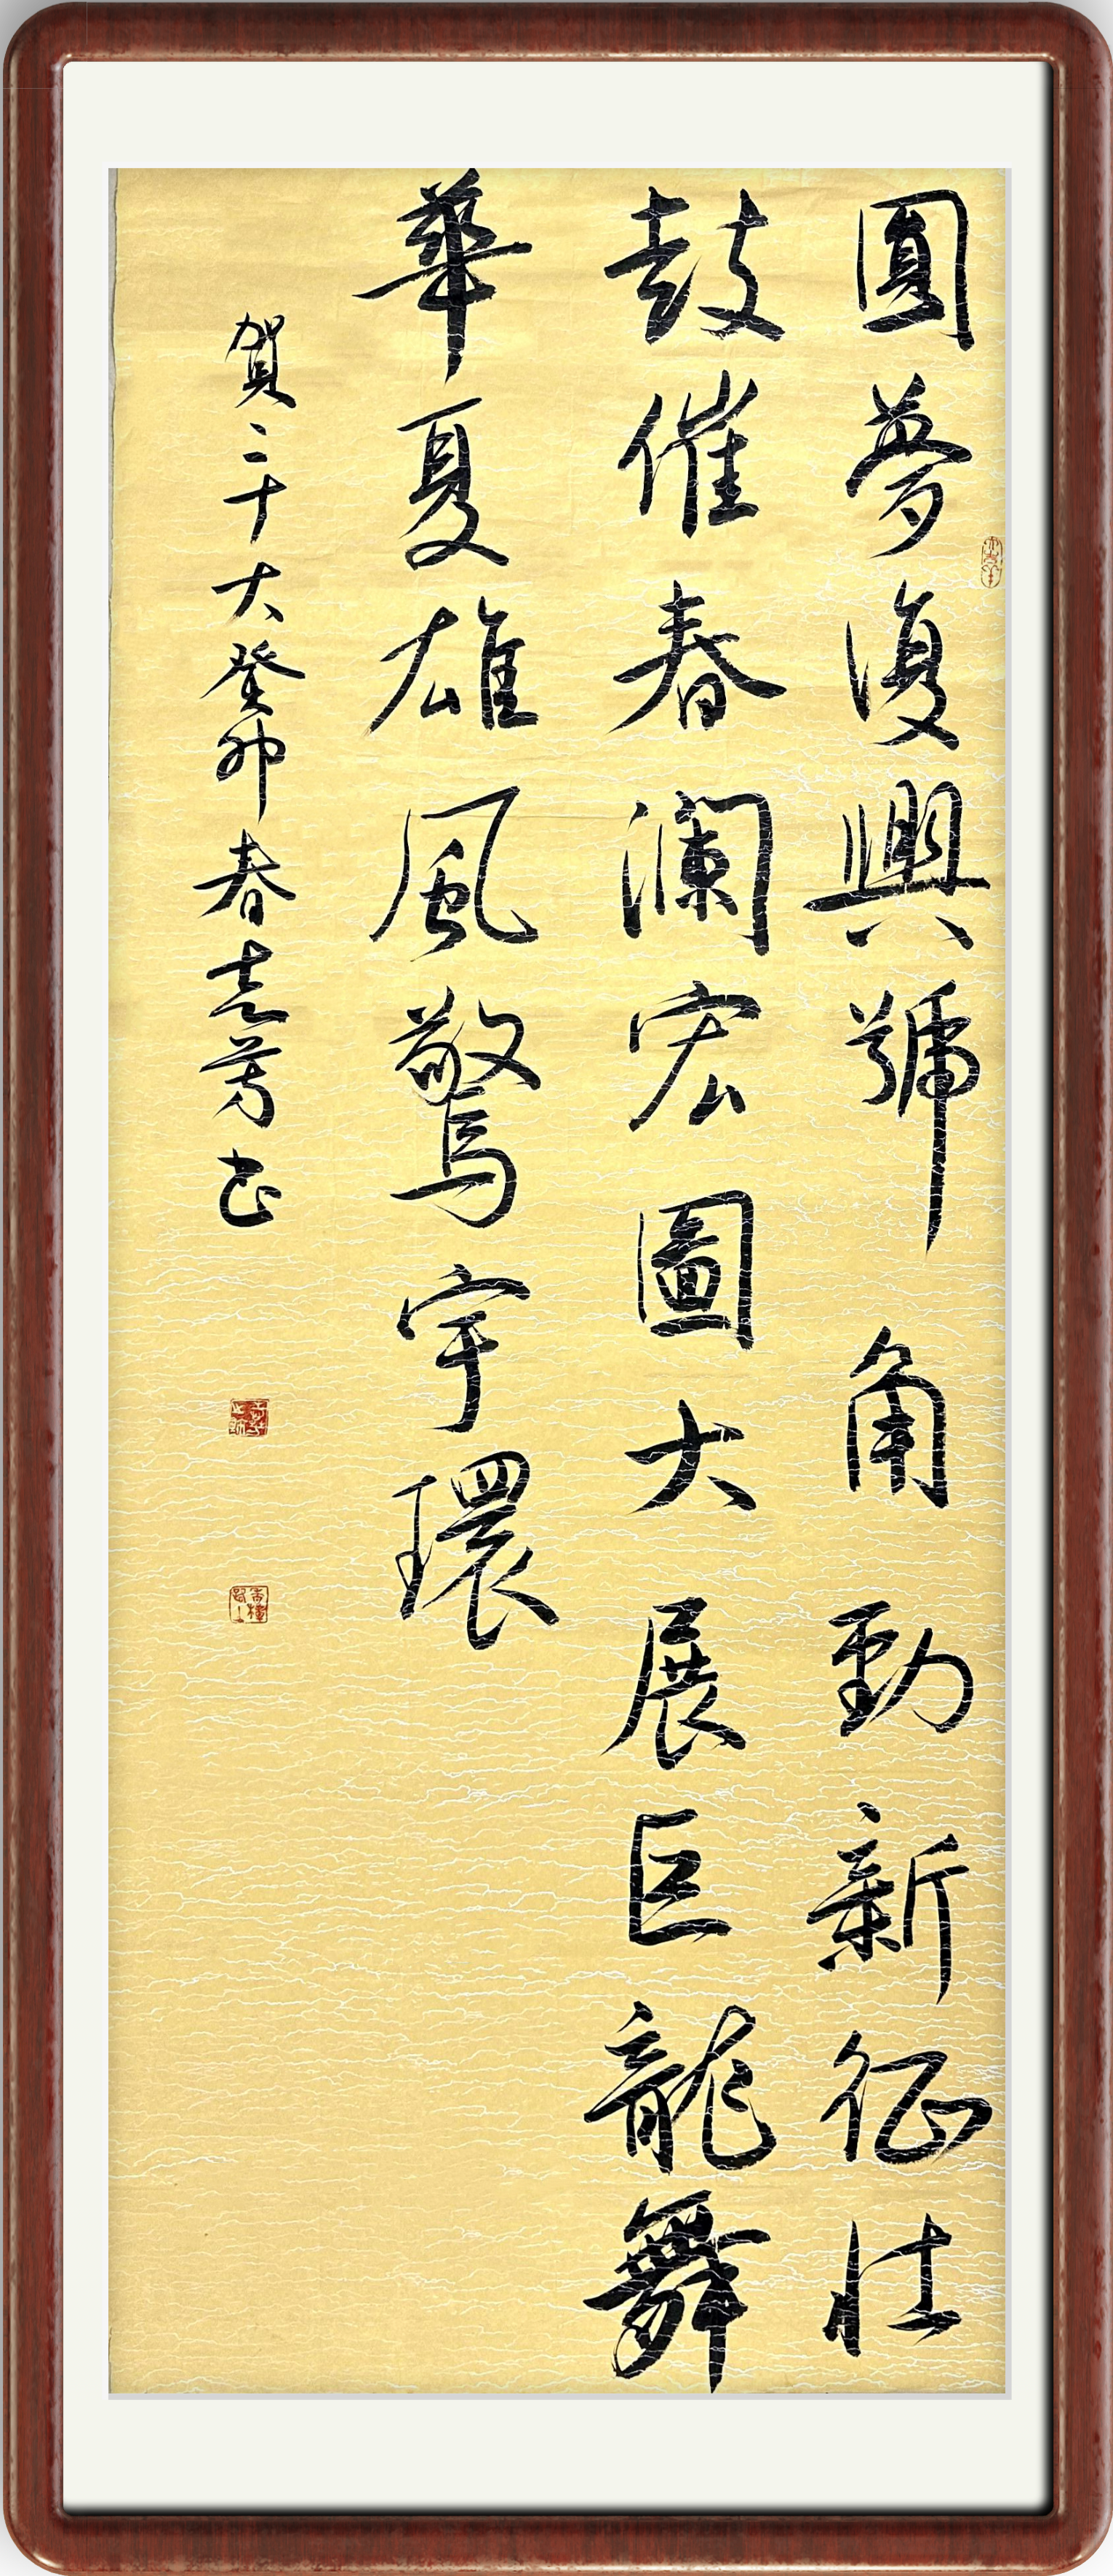 圓夢復興號角動新征壮
鼓催春瀾宏圖大展巨龍舞
華夏雄風驚宇環
賀二十大癸卯春志芳书